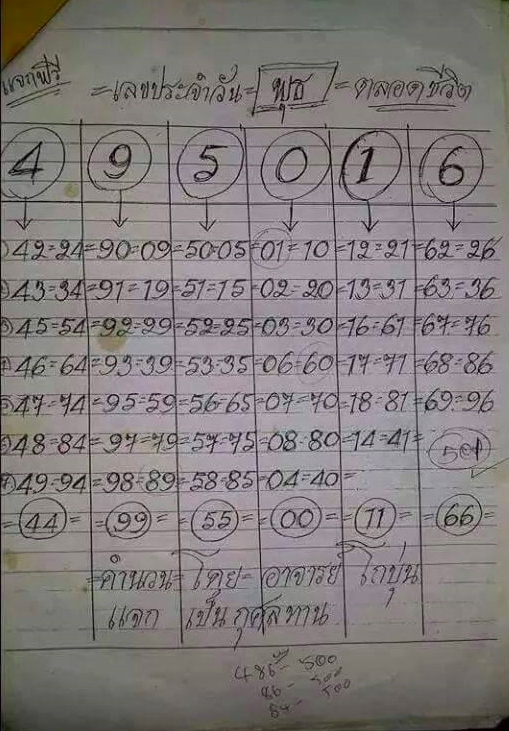 แจกฟรี
=เลขประจำวัน= พุธ =ตลอดชีวิต
4 9 5 0 1 6
42=24=90=09=50=05=01=10=12=21=62=26
43=34=91=19=51=15=02=20=13=31=63=36
45=54=92=29=52=25=03=30=16=61=67=76
46=64=93=39=53=35=06=60=17=71=68=86
47=74=95=59=56=65=07=70=18=81=69=96
48=84=97=79=57=75=08=80=14=41=
501
49=94=98=89=58=85=04=40=
=44= =99= =55= =00= =11= =66=
=คำนวน= โดย= อาจารย์ โกบุ่น
แจก เป็นกุศลทาน
486 - 500
86 - 500
84 - 500